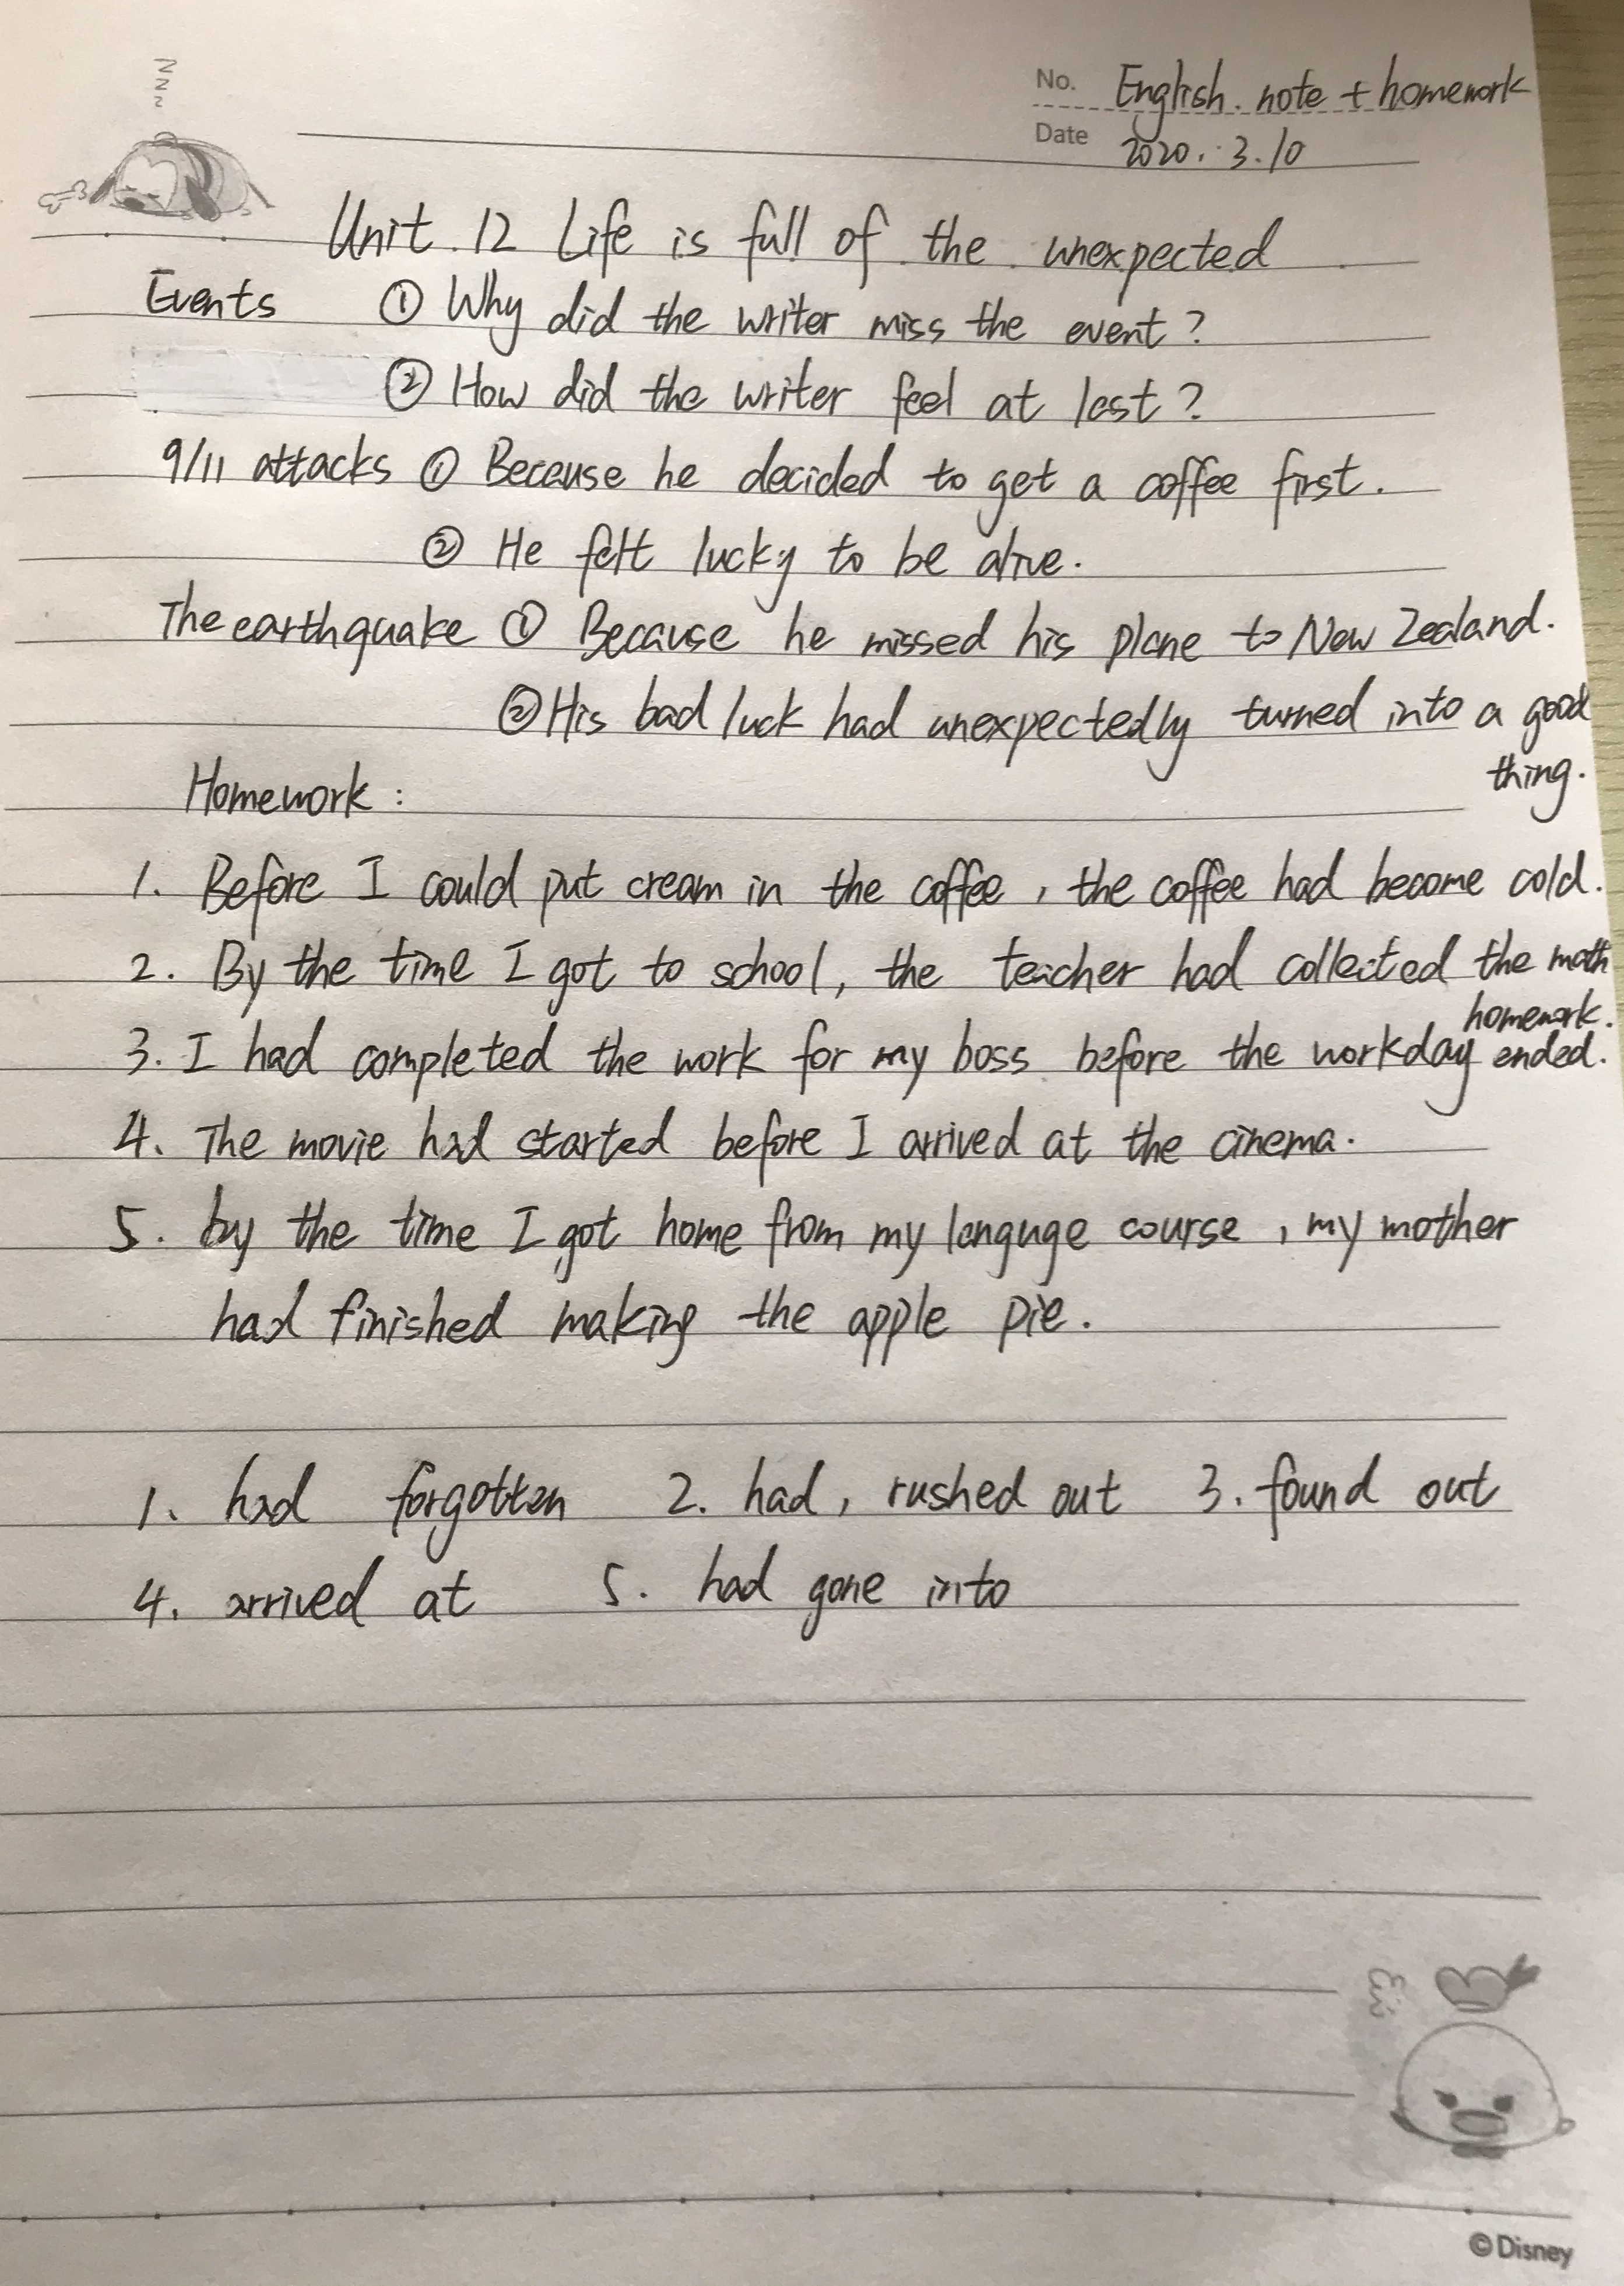 No. English. note + homework
Date 2020. 3. 10
Unit. 12 Life is full of the unexpected
Events ① Why did the writer miss the event?
② How did the writer feel at last?
9/11 attacks ① Because he decided to get a coffee first.
② He felt lucky to be alive.
The earthquake ① Because he missed his plane to New Zealand.
② His bad luck had unexpectedly turned into a good
thing.
Homework:
1. Before I could put cream in the coffee, the coffee had become cold.
2. By the time I got to school, the teacher had collected the math
homework.
3. I had completed the work for my boss before the workday ended.
4. The movie had started before I arrived at the cinema.
5. by the time I got home from my languge course, my mother
had finished making the apple pie.
1. had forgotten 2. had, rushed out 3. found out
4. arrived at 5. had gone into
©Disney